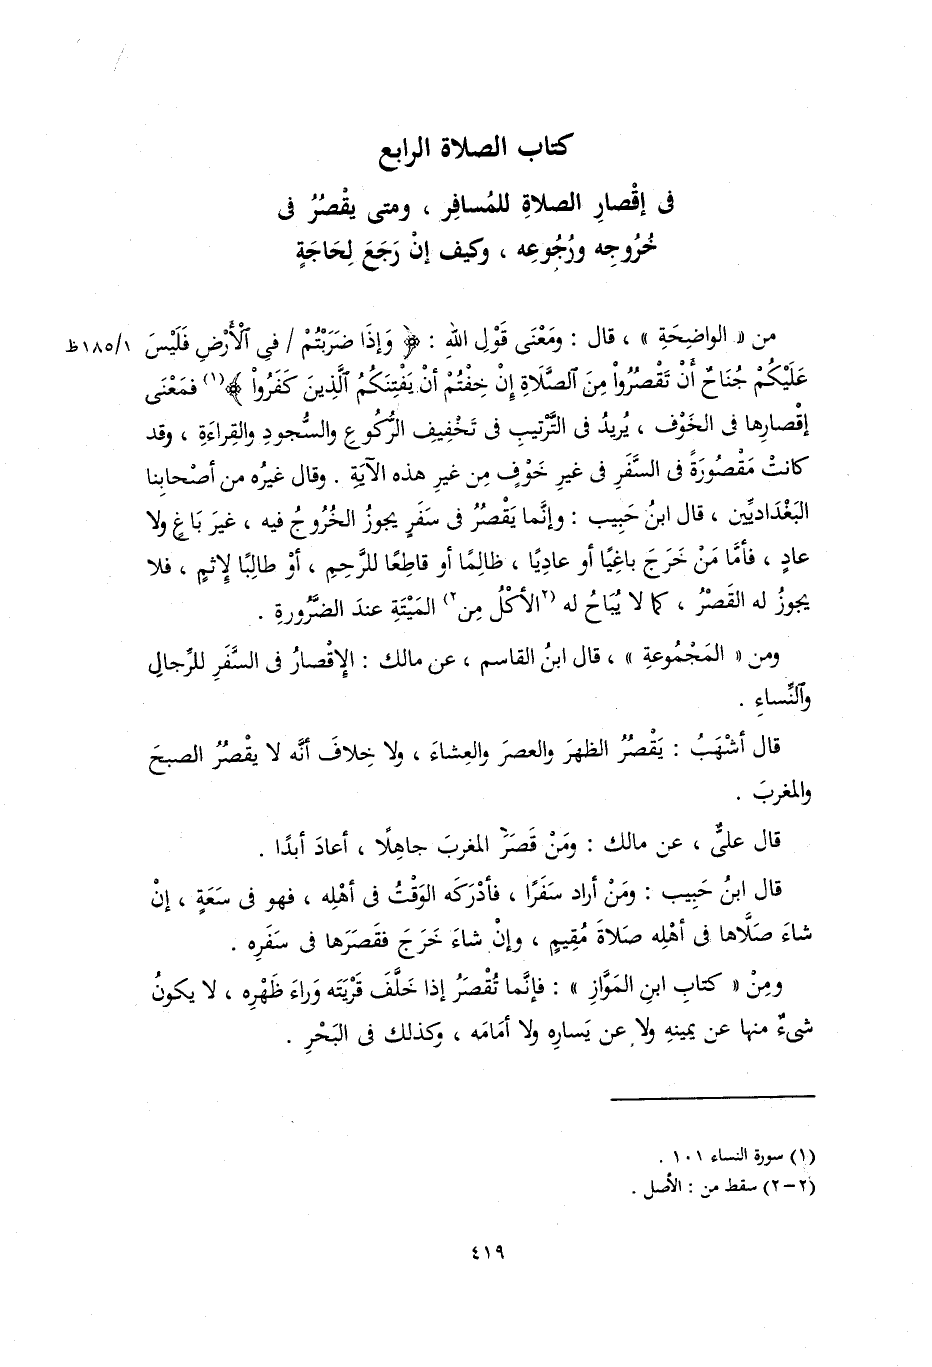 كتاب الصلاة الرابع
فى إقْصارِ الصلاةِ للمُسافِرِ ، ومتى يقْصُرُ فى
خُرُوجِه ورُجُوعِه ، وكيف إنْ رَجَعَ لِحَاجَةٍ
من « الواضِحَةِ » ، قال : ومَعْنَى قَوْلِ اللهِ : ﴿ وَإِذَا ضَرَبْتُمْ / فِي ٱلْأَرْضِ فَلَيْسَ ١/١٨٥ظ
عَلَيْكُمْ جُنَاحٌ أَنْ تَقْصُرُواْ مِنَ ٱلصَّلَاةِ إِنْ خِفْتُمْ أَنْ يَفْتِنَكُمُ ٱلَّذِينَ كَفَرُواْ ﴾(١) فمَعْنَى
إقْصارِها فى الخَوْف ، يُرِيدُ فى التَّرْتِيبِ فى تَخْفِيف الرُّكُوعِ والسُّجودِ والقِراءَةِ ، وقد
كانتْ مَقْصُورَةً فى السَّفَرِ فى غيرِ خَوْفٍ مِن غيرِ هذه الآيَةِ . وقال غيرُه من أصْحابِنا
البَغْدَاديِّين ، قال ابنُ حَبِيب : وإنَّما يَقْصُرُ فى سَفَرٍ يجوزُ الخُرُوجُ فيه ، غيرَ بَاغٍ ولا
عادٍ ، فأمَّا مَنْ خَرَجَ باغِيًا أو عادِيًا ، ظالِمًا أو قاطِعًا للرَّحِمِ ، أوْ طالِبًا لإثمٍ ، فلا
يجوزُ له القَصْرُ ، كما لا يُبَاحُ له (٢الأكْلُ مِن٢) المَيْتَةِ عندَ الضَّرُورةِ .
ومن « المَجْمُوعةِ » ، قال ابنُ القاسم ، عن مالك : الإقْصارُ فى السَّفَرِ للرِّجالِ
والنِّساءِ .
قال أشْهَبُ : يَقْصُرُ الظهرَ والعصرَ والعِشاءَ ، ولا خِلافَ أنَّه لا يقْصُرُ الصبحَ
والمغربَ .
قال علىٌّ ، عن مالك : ومَنْ قَصَرَ المغربَ جاهِلًا ، أعادَ أبدًا .
قال ابنُ حَبِيب : ومَنْ أراد سَفَرًا ، فأدْرَكَه الوَقْتُ فى أهْلِه ، فهو فى سَعَةٍ ، إنْ
شاءَ صَلَّاها فى أهْلِه صلاةَ مُقِيمٍ ، وإنْ شاءَ خَرَجَ فقَصَرَها فى سَفَرِه .
ومِنْ « كتابِ ابنِ المَوَّازِ » : فإنَّما تُقْصَرُ إذا خَلَّفَ قَرْيَتَه وَراءَ ظَهْرِه ، لا يكونُ
شىءٌ منها عن يمينهِ ولا عن يَسارِه ولا أمَامَه ، وكذلك فى البَحْرِ .
(١) سورة النساء ١٠١ .
(٢-٢) سقط من : الأصل .
٤١٩